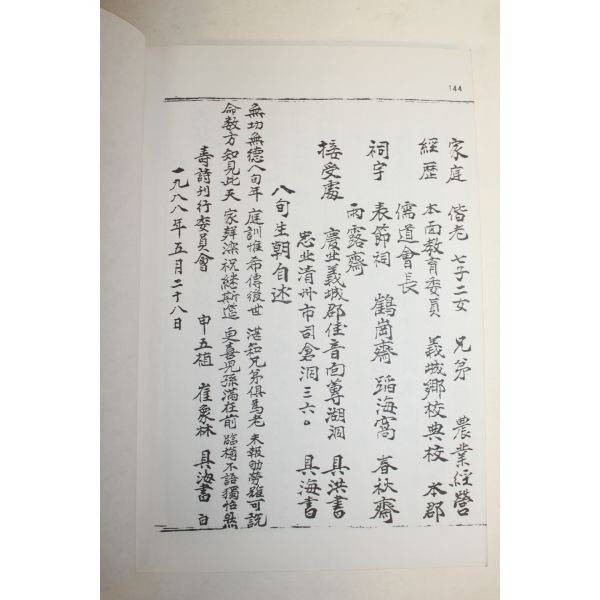 144
家庭 偕老 七子二女 兄弟 農業経營
經歷 本面教育委員 義城鄉校典校 本郡
儒道會長
祠宇 表節祠 鶴崗齋 蹈海窩 春秋齋
雨露齋
接受處 慶北義城郡佳音面尊湖洞 具洪書
忠北清州市司倉洞三六。 具海書
八旬生朝自述
無功無德八旬年 庭訓惟希傳後世 湛和兄弟俱爲老 未報劬勞雖可說
命数方知見此天 家群深祝継斯筵 更喜児孫滿在前 臨樽不語獨怡然
壽詩刊行委員會 申五植 崔象林 具海書 白
一九八八年五月二十八日